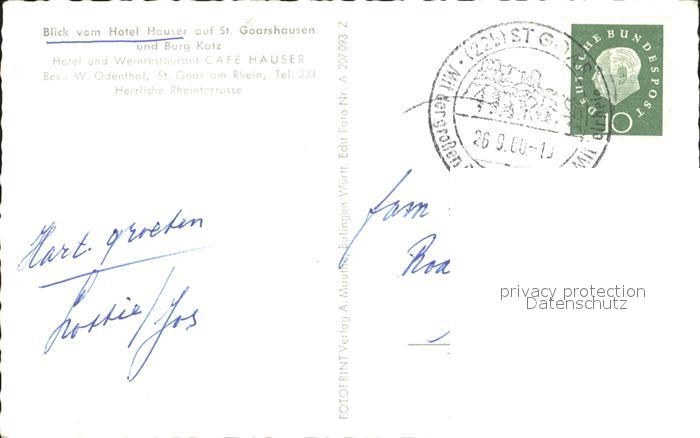 Blick vom Hotel Hauser auf St. Goarshausen
und Burg Katz
Hotel und Weinrestaurant CAFE HAUSER
Bes.: W. Odenthal, St. Goar am Rhein, Tel. 333
Herrliche Rheinterrasse
FOTOFRINT Verlag A. Mauthe, Balingen Württ. Echt Foto Nr. A 207093 Z
(22b) ST GOAR
Mit der großen
26.9.60.-1
DEUTSCHE BUNDESPOST
10
Hart. groeten
Lottie/Jos
fam
Roa
privacy protection
Datenschutz